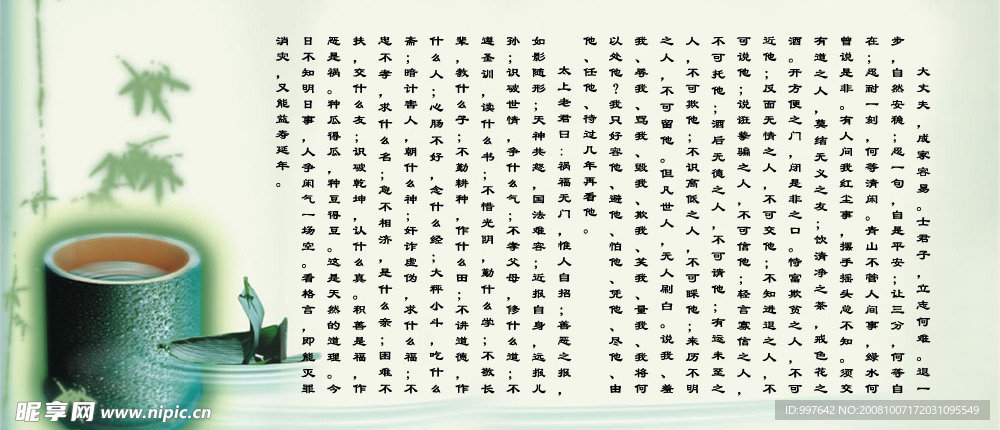 大丈夫，成家容易。士君子，立志何难。退一
步，自然安稳；忍一句，自是平安；让三分，何等自
在；忍耐一刻，何等清闲。青山不管人间事，绿水何
曾说是非。有人问我红尘事，摆手摇头总不知。须交
有道之人，莫结无义之友；饮清净之茶，戒色花之
酒。开方便之门，闭是非之口。恃富欺贫之人，不可
近他；反面无情之人，不可交他；不知进退之人，不
可说他；说诳黎骗之人，不可信他；轻言寡信之人，
不可托他；酒后无德之人，不可请他；有运未至之
人，不可欺他；不识高低之人，不可睬他；来历不明
之人，不可留他。但凡世人，无人刷白。说我、羞
我、辱我、骂我、毁我、欺我、笑我、量我、我将何
以处他？我只好容他、避他、怕他、凭他、尽他、由
他、任他、待过几年再看他。
太上老君曰：祸福无门，惟人自招；善恶之报，
如影随形；天神共怒，国法难容；近报自身，远报儿
孙；识破世情，争什么气；不孝父母，修什么道；不
遵圣训，读什么书；不惜光阴，勤什么学；不敬长
辈，教什么子；不勤耕种，作什么田；不讲道德，作
什么人；心肠不好，念什么经；大秤小斗，吃什么
斋；暗计害人，朝什么神；奸诈虚伪，求什么福；不
忠不孝，求什么名；急不相济，是什么亲；困难不
扶，交什么友；识破乾坤，认什么真。积善是福，作
恶是祸。种瓜得瓜，种豆得豆。这是天然的道理。今
日不知明日事，人争闲气一场空。看格言，即能灭罪
消灾，又能益寿延年。
昵享网 www.nipic.cn
ID:997642 NO:20081007172031095549